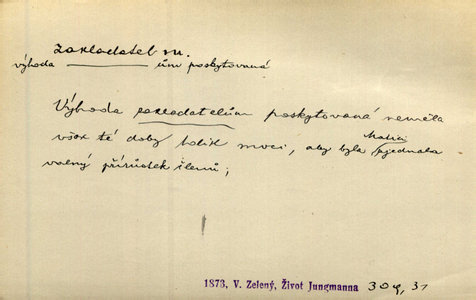 zakladatel m.
výhoda ——— ům poskytovaná
Výhoda zakladatelům poskytovaná neměla
však té doby tolik moci, aby byla Matici zjednala
valný přírůstek členů;
1873, V. Zelený, Život Jungmanna 304, 31